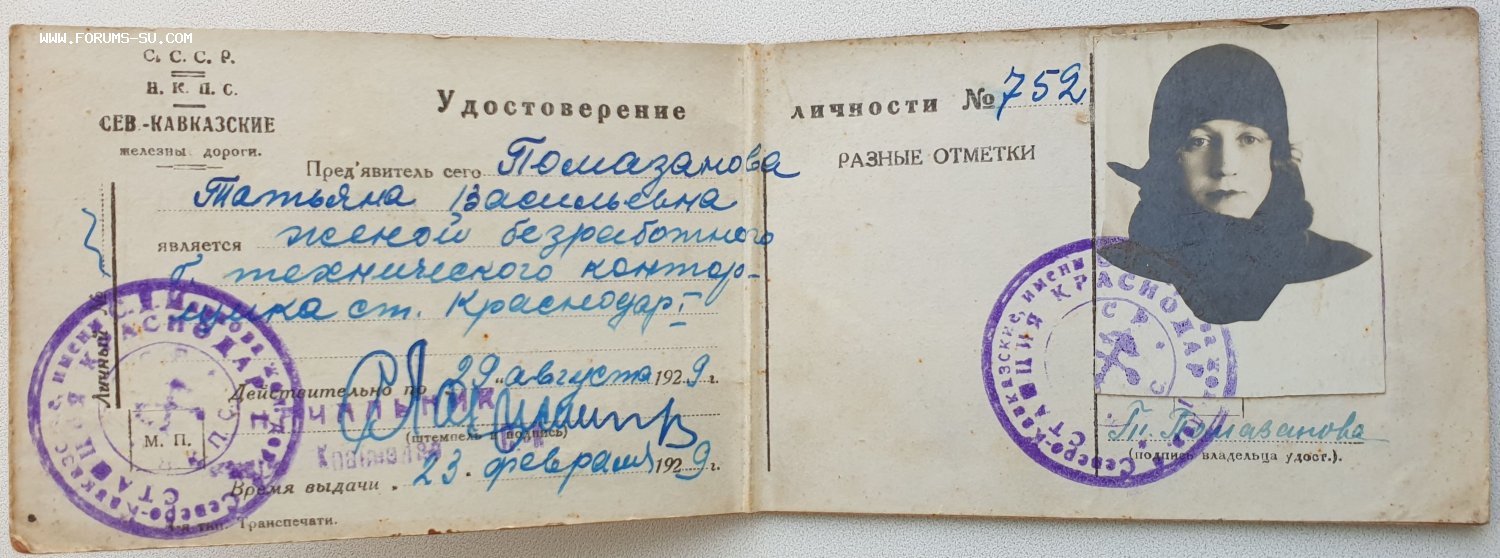 www.forums-su.com
С. С. С. Р.
Н. К. П. С.
СЕВ.-КАВКАЗСКИЕ
железны дороги.
Удостоверение личности № 752
Пред'явитель сего Помазанова
Татьяна Васильевна
является женой безработного
б. технического контор-
щика ст. Краснодар I
Действительно по "29" августа 1929 г.
(штемпель и подпись)
М. П.
Время выдачи „ 23 февраля 1929 г.
Личный №
тип. Транспечати.
НАЧАЛЬНИК
СТАНЦИЯ КРАСНОДАР I
РАЗНЫЕ ОТМЕТКИ
Северо-Кавказские, имени
СТАНЦИЯ КРАСНОДАР
Т. Помазанова
(подпись владельца удост.).